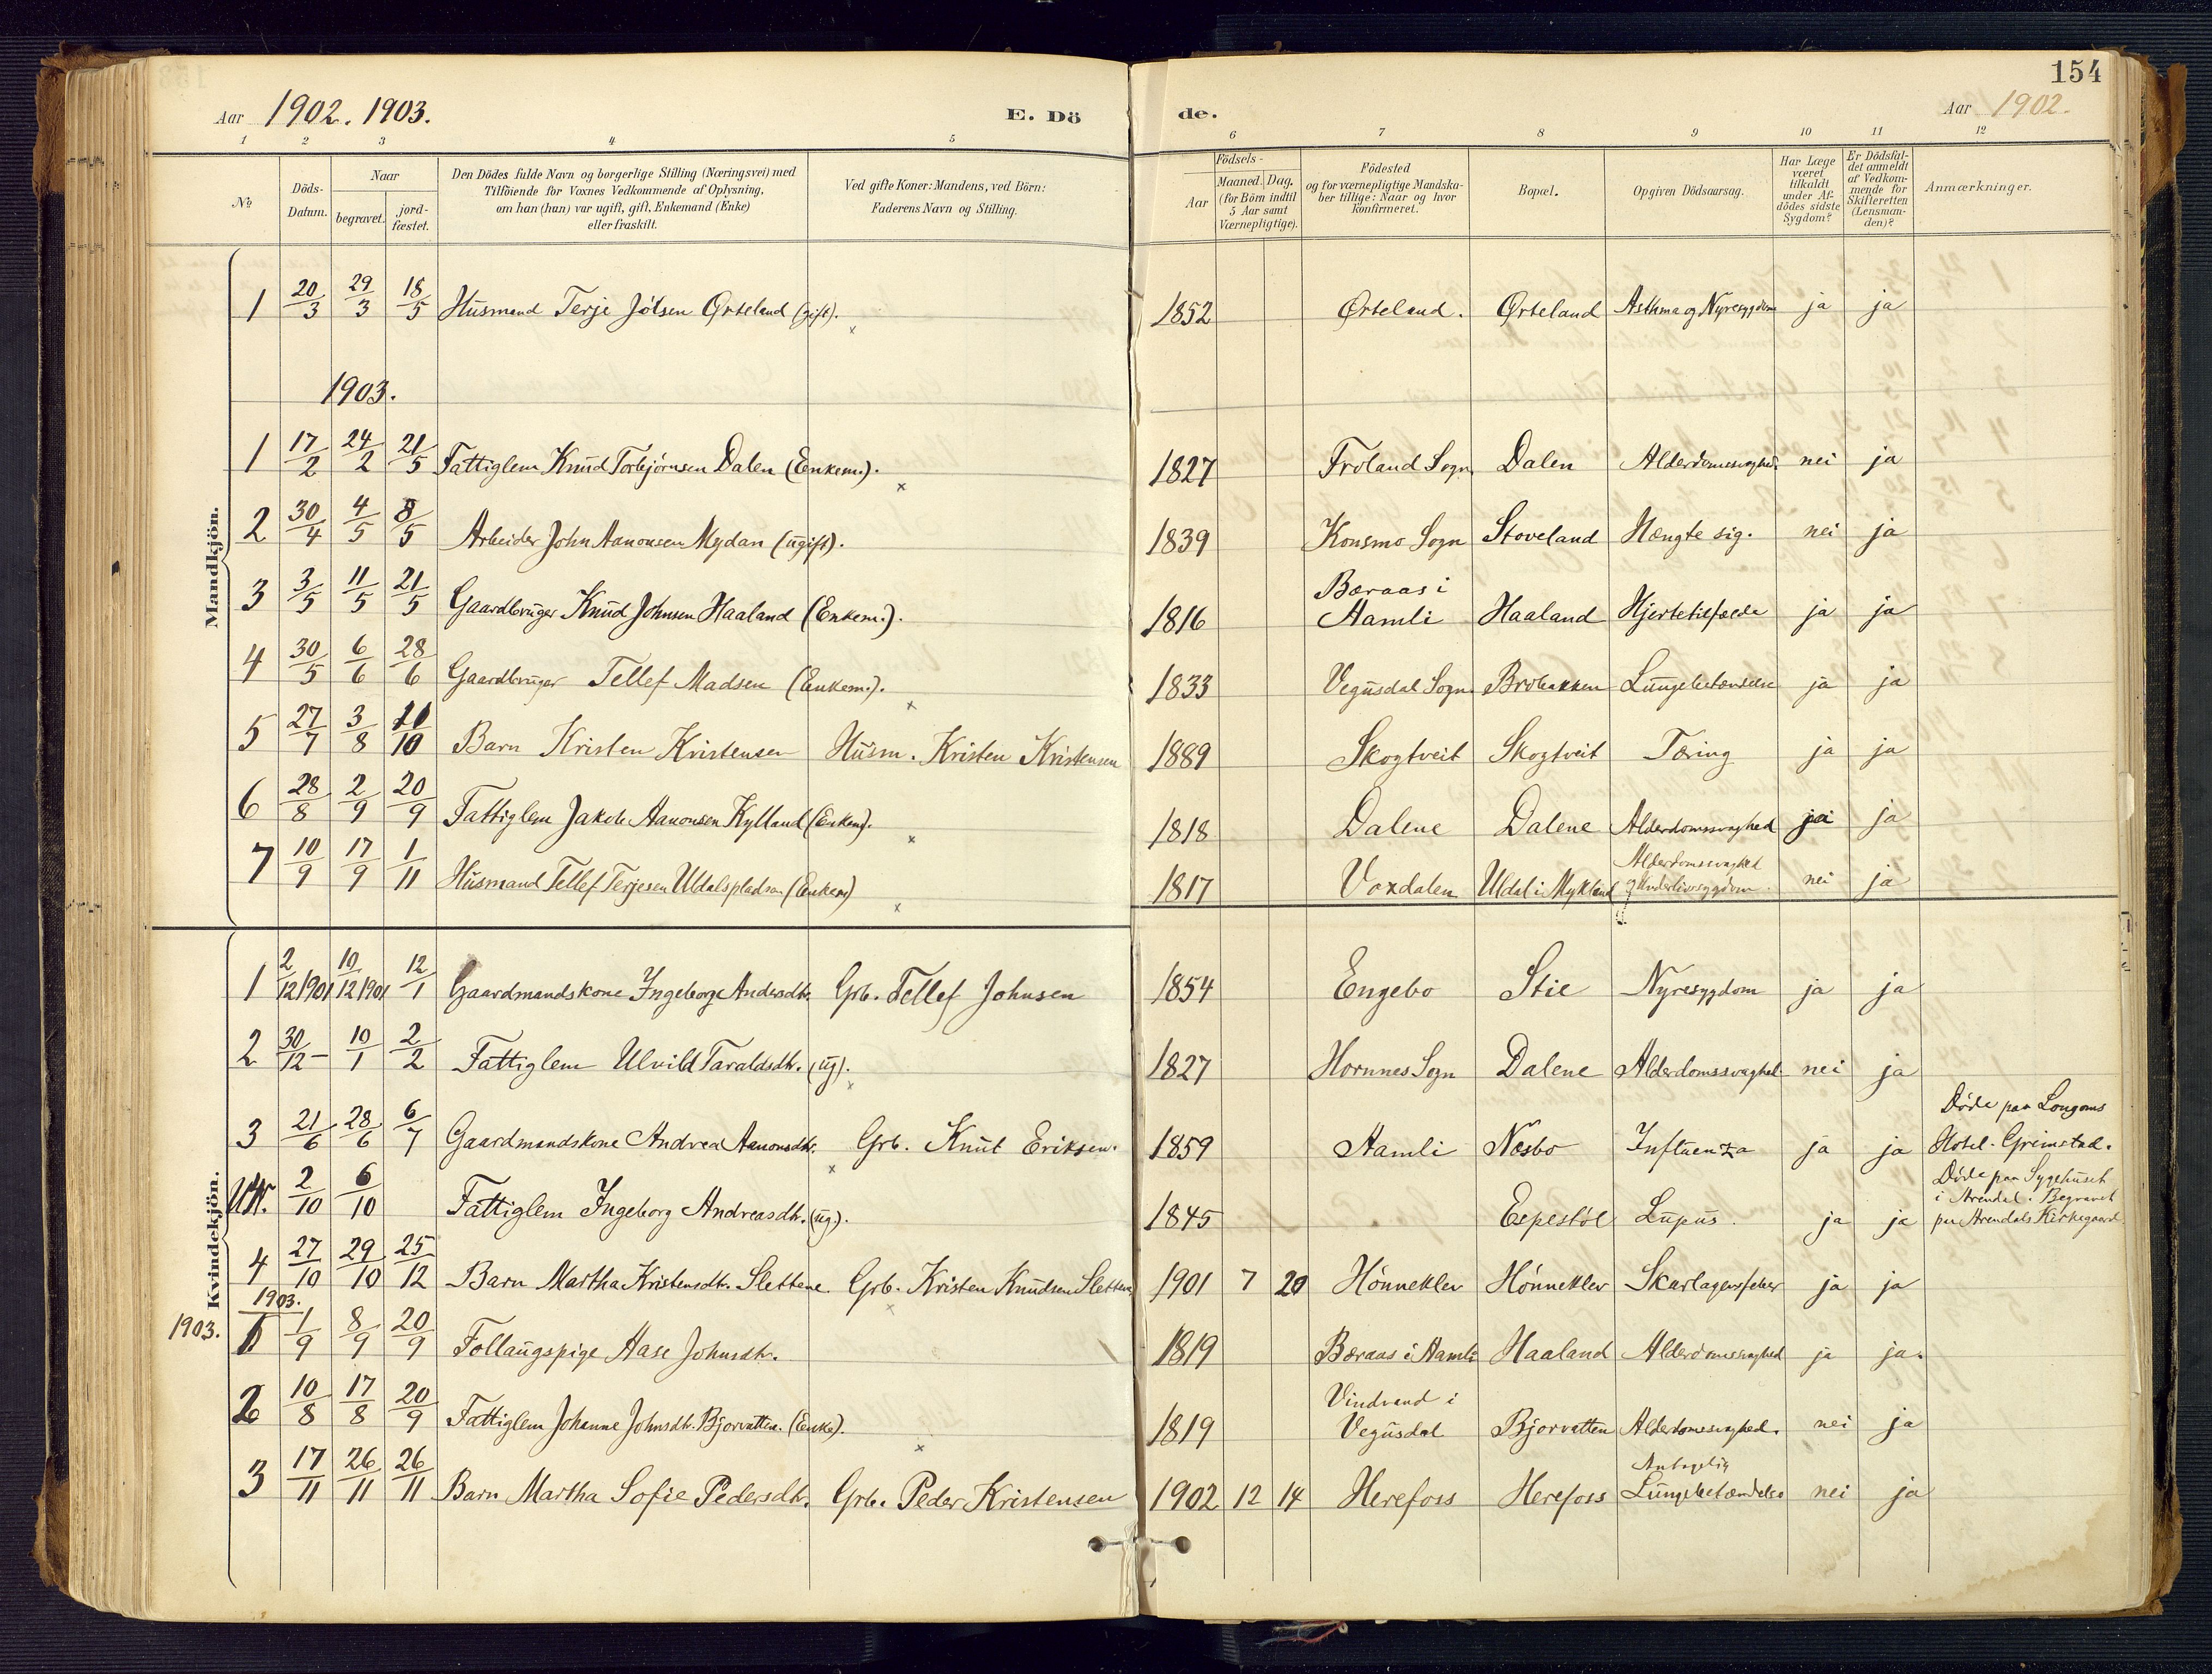 154
Aar 1902. 1903. E. Dö de. Aar 1902.
1 2 3 4 5 6 7 8 9 10 11 12
№ Döds-Datum. Naar begravet. jord-fæstet. Den Dödes fulde Navn og borgerlige Stilling (Næringsvei) med Tilföiende for Voxnes Vedkommende af Oplysning, om han (hun) var ugift, gift, Enkemand (Enke) eller fraskilt. Ved gifte Koner: Mandens, ved Börn: Faderens Navn og Stilling. Födsels- Aar Maaned. Dag. (for Börn indtil 5 Aar samt Værnepligtige). Födested og for værnepligtige Mandskaber tillige: Naar og hvor konfirmeret. Bopæl. Opgiven Dödsaarsag. Har Læge været tilkaldt under Afdödes sidste Sygdom? Er Dödsfaldet anmeldt af Vedkommende for Skifteretten (Lensmanden)? Anmærkninger.
Mandkjön.
1 20/3 29/3 18/5 Husmand Terje Jólsen Ørteland (gift). x 1852 Ørteland. Ørteland Asthma og Nyresygdom ja ja
1903.
1 17/2 24/2 21/5 Fattiglem Knud Torbjórnsen Dalen (Enkem.). x 1827 Froland Sogn Dalen Alderdomssvaghed. nei ja
2 30/4 4/5 8/5 Arbeider John Aanonsen Mydan (ugift). 1839 Konsmo Sogn Stoveland Hængte sig. nei ja
3 3/5 11/5 21/5 Gaardbruger Knud Johnsen Haaland (Enkem.). 1816 Baraas i Aamli Haaland Hjertetilfælde ja ja
4 30/5 6/6 28/6 Gaardbruger Tellef Madsen (Enkem.). x 1833 Vegusdal Sogn Brobakken Lungebetændelse ja ja
5 27/7 3/8 11/10 Barn Kristen Kristensen Husm. Kristen Kristensen 1889 Skogtveit Skogtveit Tæring ja ja
6 28/8 2/9 20/9 Fattiglem Jakob Aanonsen Kylland (Enkem). x 1818 Dalene Dalene Alderdomssvaghed ja ja
7 10/9 17/9 1/11 Husmand Tellef Terjesen Uldalspladsen (Enkem) x 1817 Voxdalen Uldal i Mykland Alderdomssvaghed og Underlivssygdom. nei ja
Kvindekjön.
1 2/12 1901 10/12 1901 12/1 Gaardmandskone Ingeborg Andersdtr. Grb. Tellef Johnsen 1854 Engebo Stie Nyresygdom ja ja
2 30/12 – 10/1 2/2 Fattiglem Ulvild Taraldsdtr. (ug). x 1827 Hornnes Sogn Dalene Alderdomssvaghed nei ja
3 21/6 28/6 6/7 Gaardmandskone Andrea Aanonsdtr. x Grb. Knut Eriksen. 1859 Aamli Næsbo Influenza ja ja Døde paa Longums Hotel. Grimstad.
2/10 6/10 Fattiglem Ingeborg Andreasdtr. (ug.). 1845 Espestøl Lupus. ja ja Døde paa Sygehuset i Arendal. Begravet paa Arendals Kirkegaard.
4 27/10 29/10 25/12 Barn Martha Kristensdtr. Slettene. Grb. Kristen Knudsen Slettene x 1901 7 20 Hónneklev Hónneklev Skarlagensfeber ja ja
1903.
1903. 1 1/9 8/9 20/9 Follaugspige Aase Johnsdtr. 1819 Baraas i Aamli Haaland Alderdomssvaghed ja ja.
2 10/8 17/8 20/9 Fattiglem Johanne Johnsdtr. Bjorvatten. (Enke). x 1819 Vindvand i Vegusdal Bjorvatten Alderdomssvaghed. nei ja
3 17/11 26/11 26/11 Barn Martha Sofie Pedersdtr. Grb. Peder Kristensen 1902 12 14 Herefoss Herefoss Antagelig Lungebetændelse nei ja